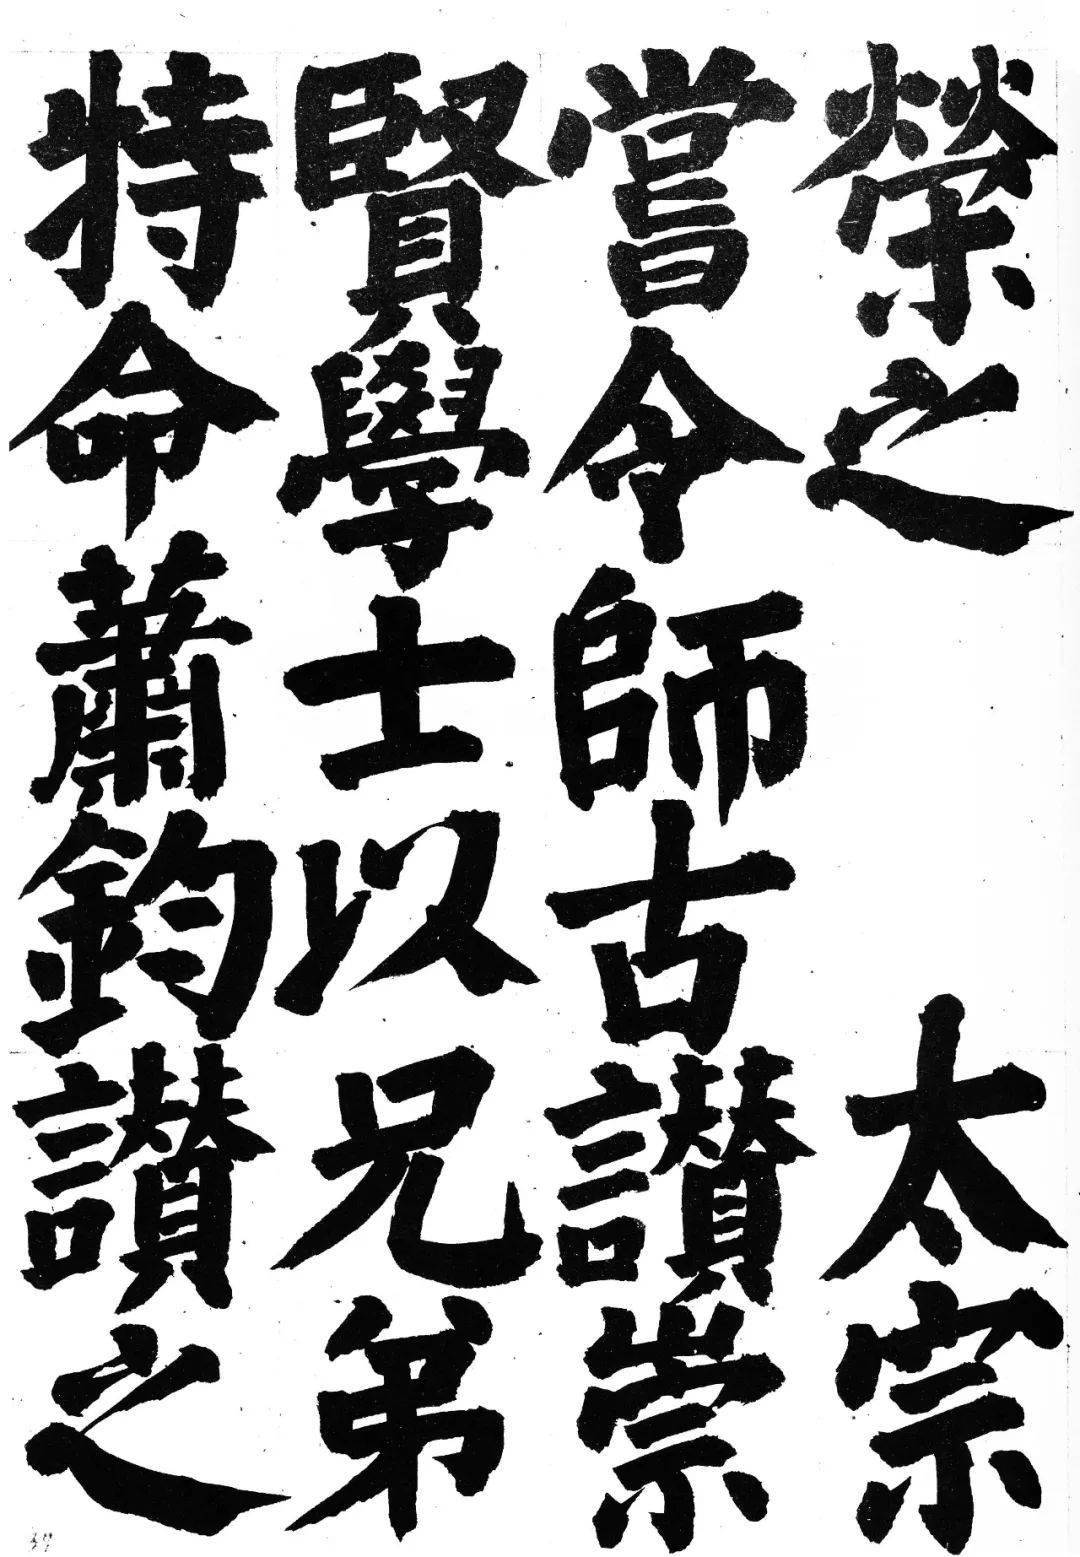 榮之　　太宗
嘗令師古讃崇
賢學士以兄弟
特命蕭鈞讃之